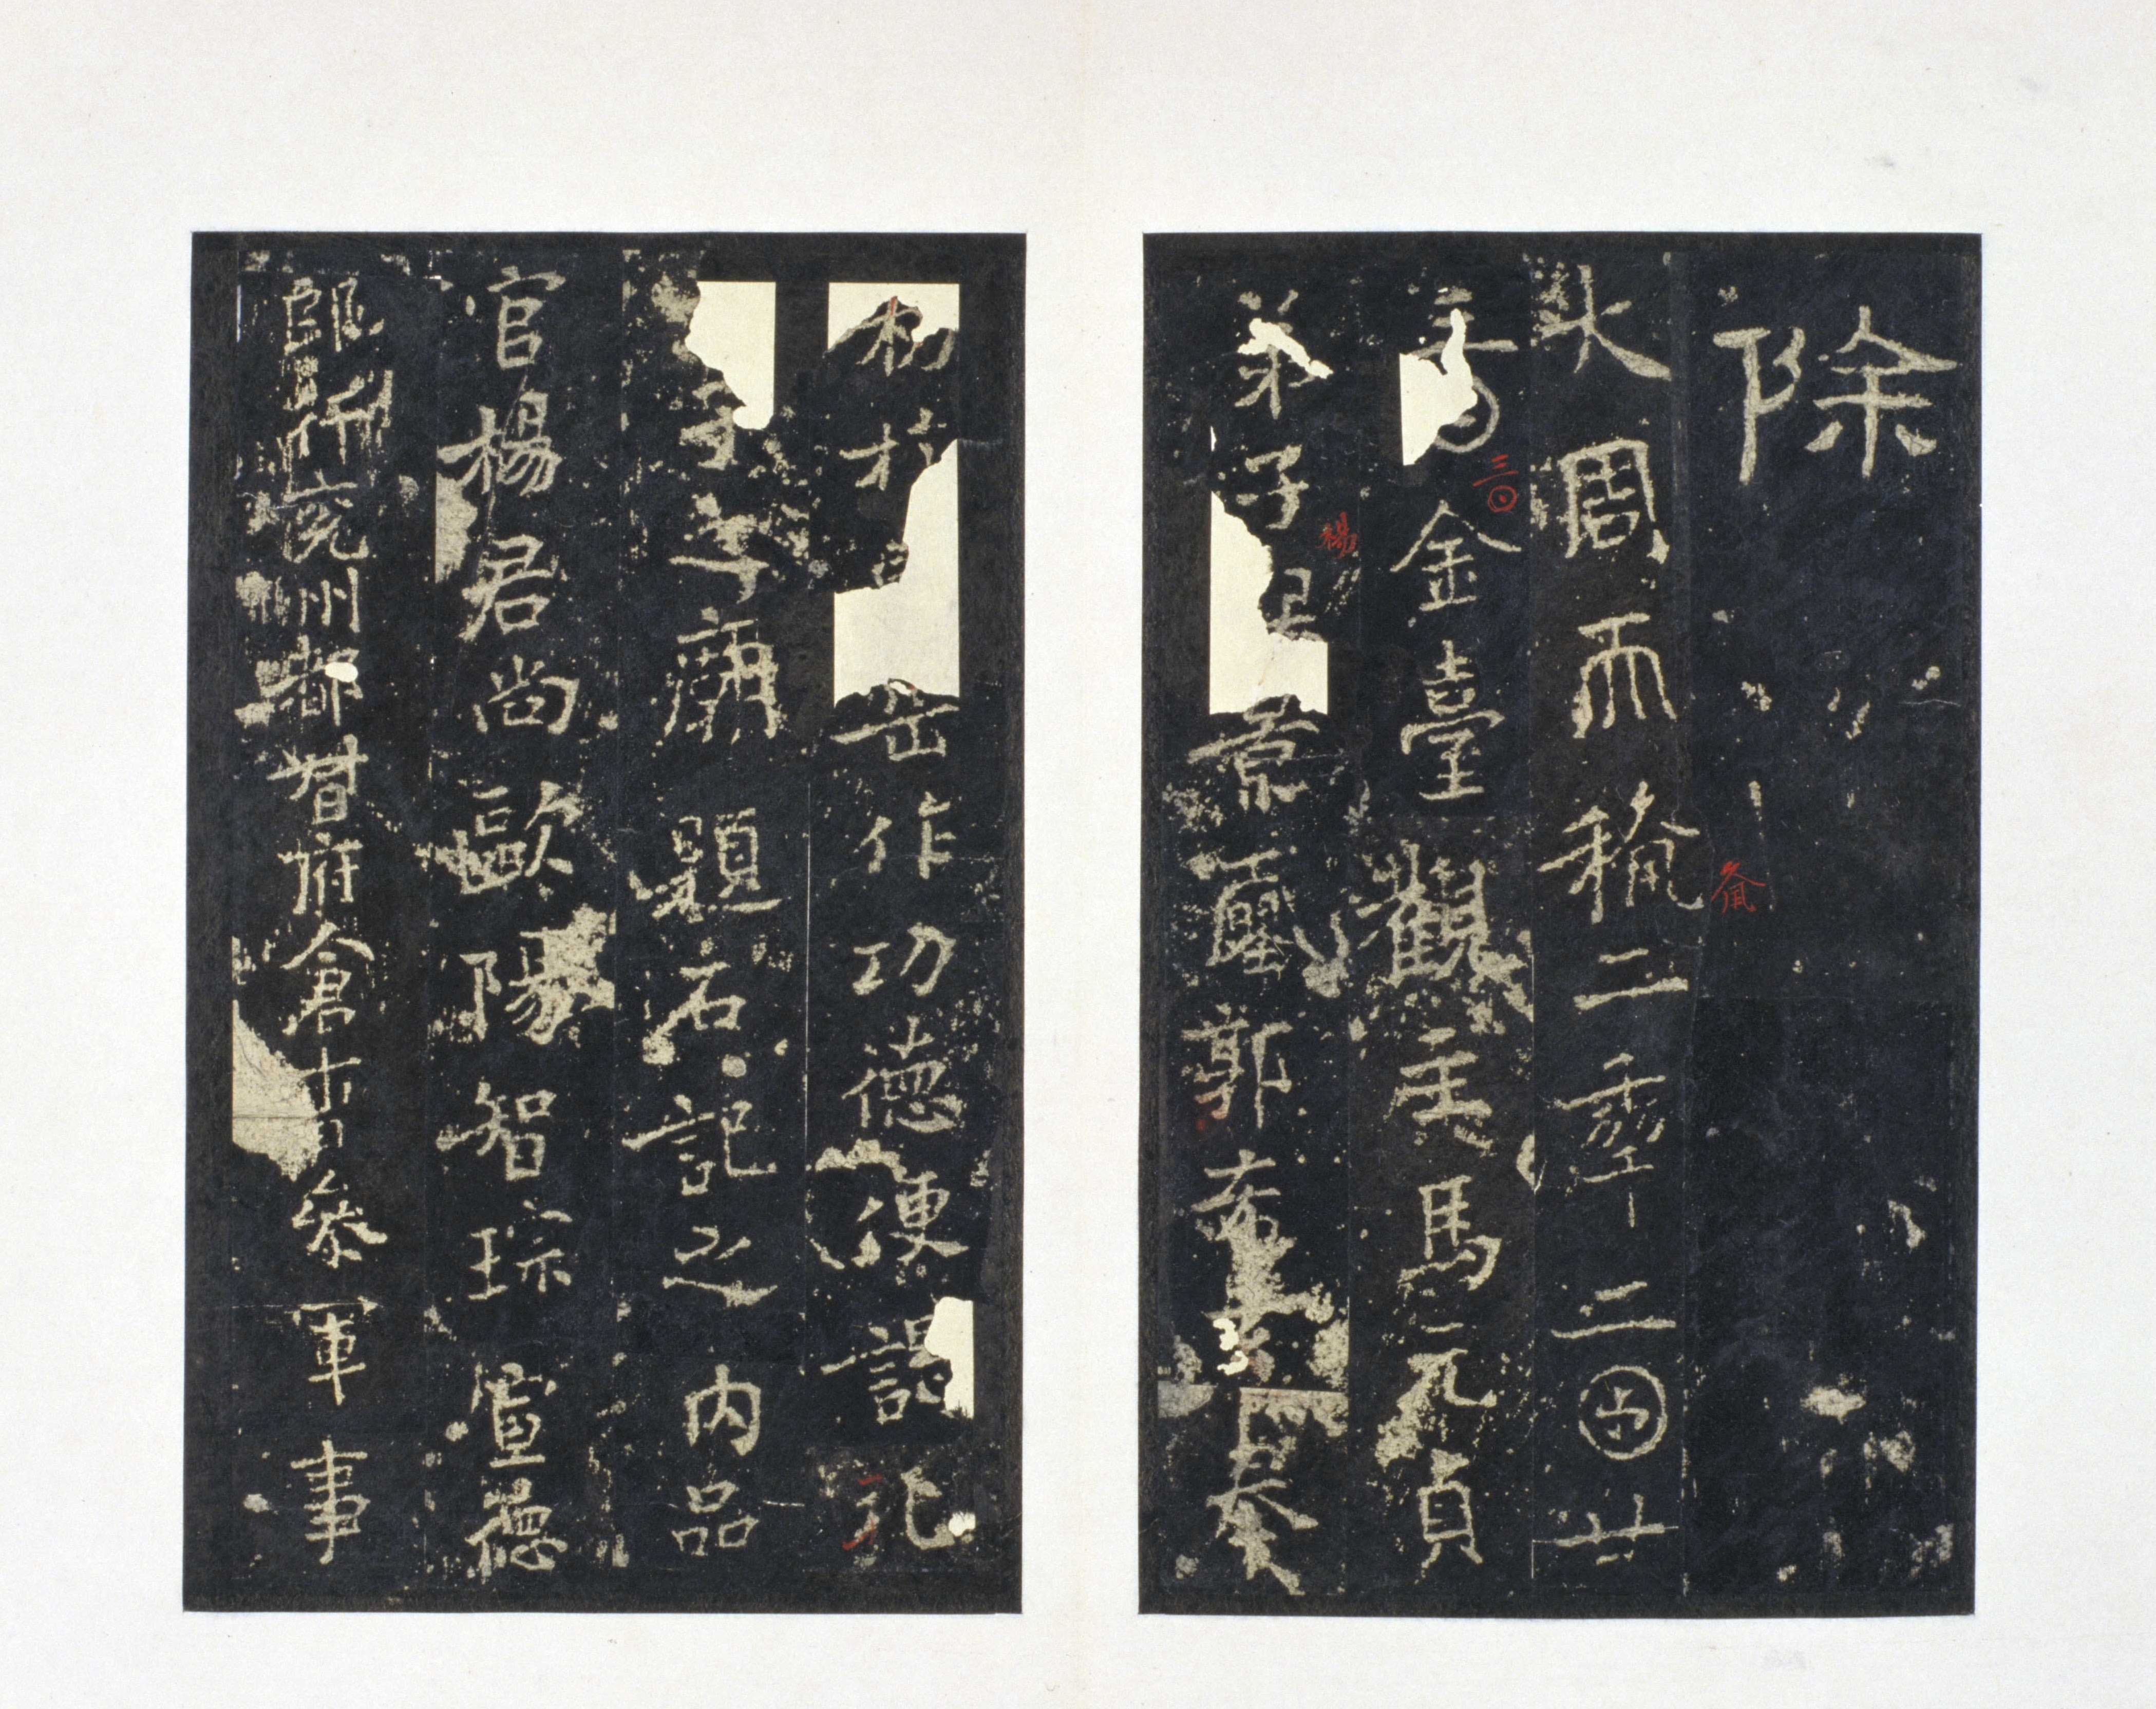 除
大周𠀑𥠢二𠡦二囝廿
三𡆠金臺觀主馬元貞
弟子楊景𡔈郭希玄奉
敕於岳作功德便謁孔
子之廟題石記之內品
官楊君尚歐陽智琮宣德
郎行兗州都督府倉曹參軍事